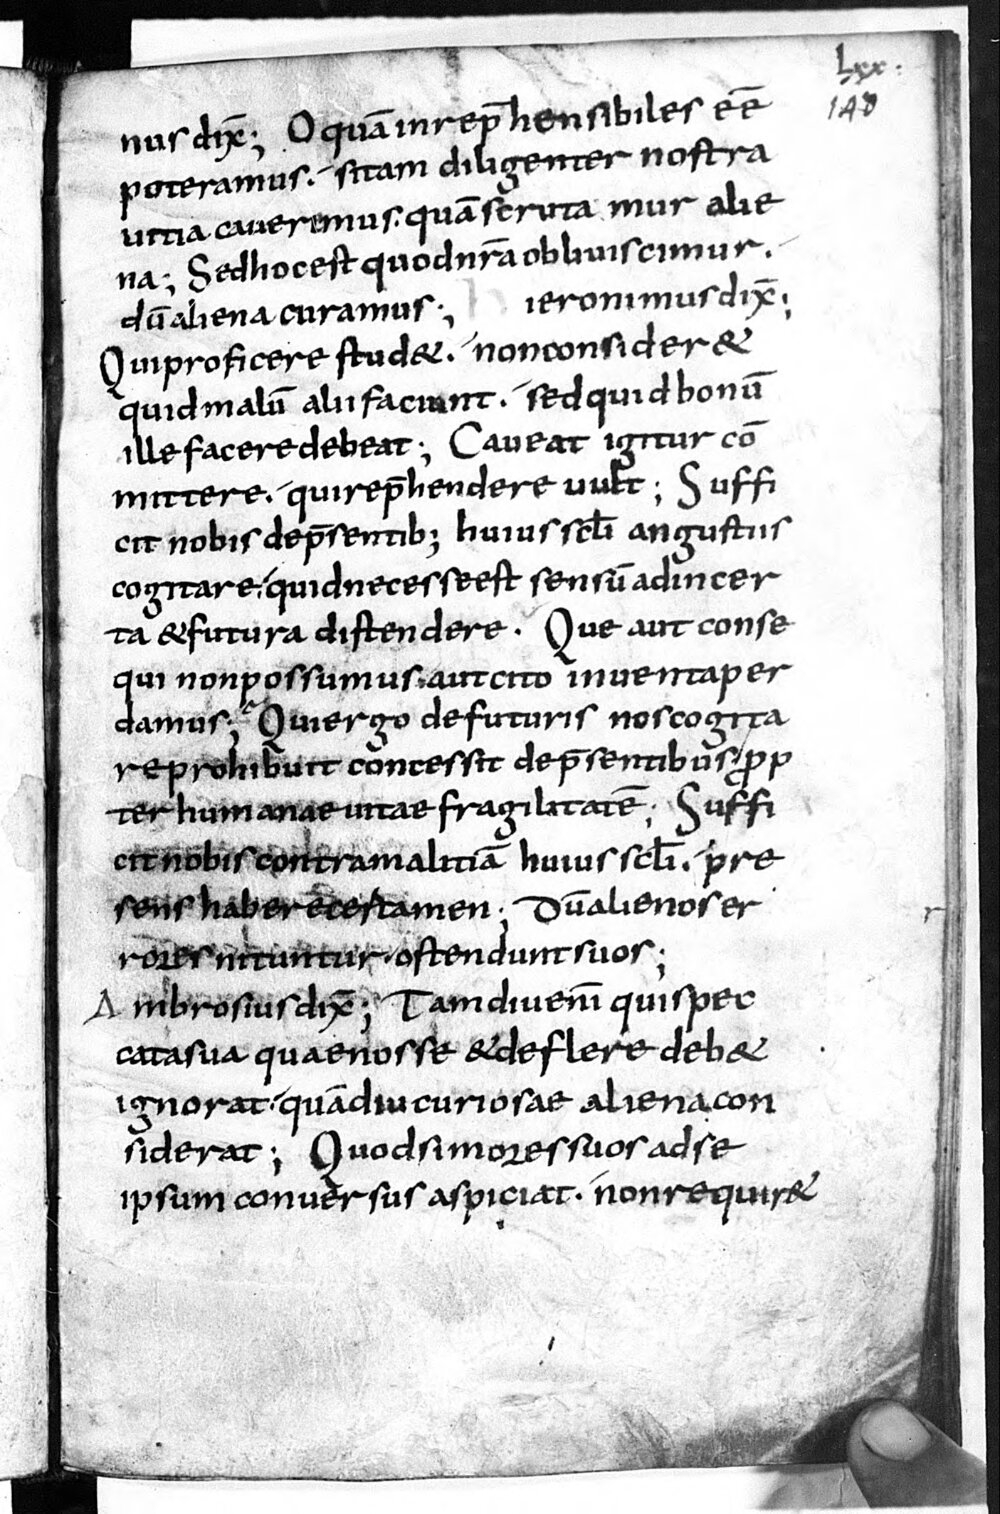 Lxx.
148
nus dix̄; O quā inrep̄hensibiles eē
poteramus. si tam diligenter nostra
uitia caueremus. quā scruta mur alie
na; Sed hoc est quod nr̄a obliuiscimur.
dū aliena curamus; Hieronimus dix̄;
Qui proficere stud&. non consider&
quid malū alii faciunt. sed quid bonū
ille facere debeat; Caueat igitur cō
mittere. qui rep̄hendere uult; Suffi
cit nobis de p̄sentib; huius scl̄i angustiis
cogitare. quid necesse est sensū ad incer
ta & futura distendere. Que aut conse
qui non possumus. aut cito inuenta per
damus; Qui ergo de futuris nos cogita
re prohibuit concessit de p̄sentibus, ꝓp
ter humanae uitae fragilitatē; Suffi
cit nobis contra malitiā huius scl̄i. pre
sens habere certamen; Dū alienos er
rores nituntur. ostendunt suos;
Ambrosius dix̄; Tamdiu eni̅ quis pec
cata sua quae nosse & deflere deb&
ignorat. quādiu curiosae aliena con
siderat; Quod si mores suos ad se
ipsum conuersus aspiciat. non requir&